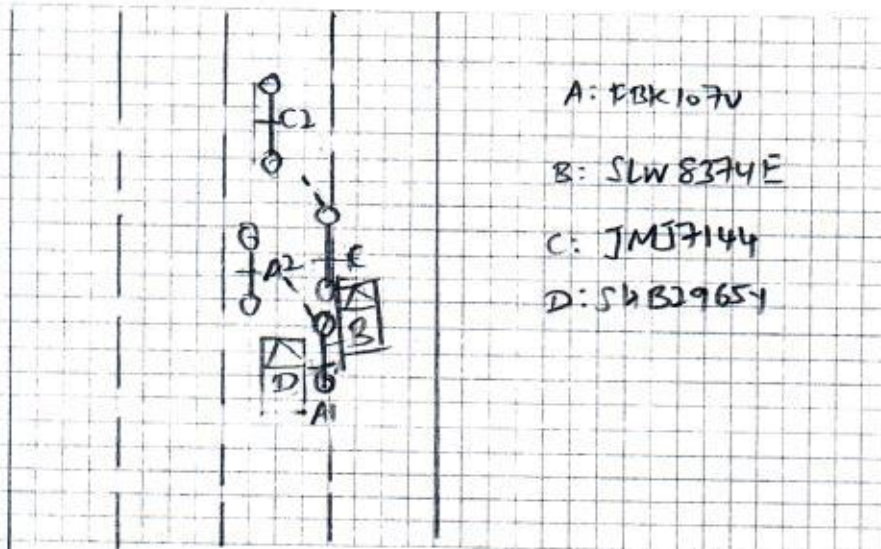 C2
A2
C
B
D
A1
A: FBK107U
B: SLW8374E
C: JMJ7144
D: SKB2965Y